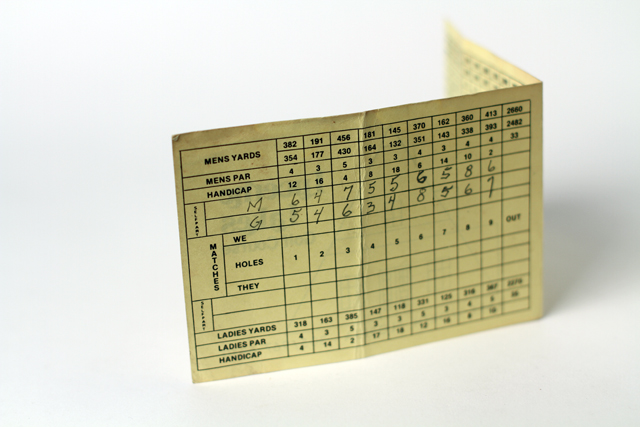 382 191 456 181 145 370 162 360 413 2660
MENS YARDS 354 177 430 164 132 351 143 338 393 2482
MENS PAR 4 3 5 3 3 4 3 4 4 33
HANDICAP 12 16 4 8 18 6 14 10 2
M 6 4 7 5 5 6 5 8 6
G 5 4 6 3 4 8 5 6 7
MATCHES
WE
HOLES 1 2 3 4 5 6 7 8 9 OUT
THEY
LADIES YARDS 318 163 385 147 118 331 125 316 367 2270
LADIES PAR 4 3 5 3 3 5 3 4 5
HANDICAP 4 14 2 17 18 12 16 8